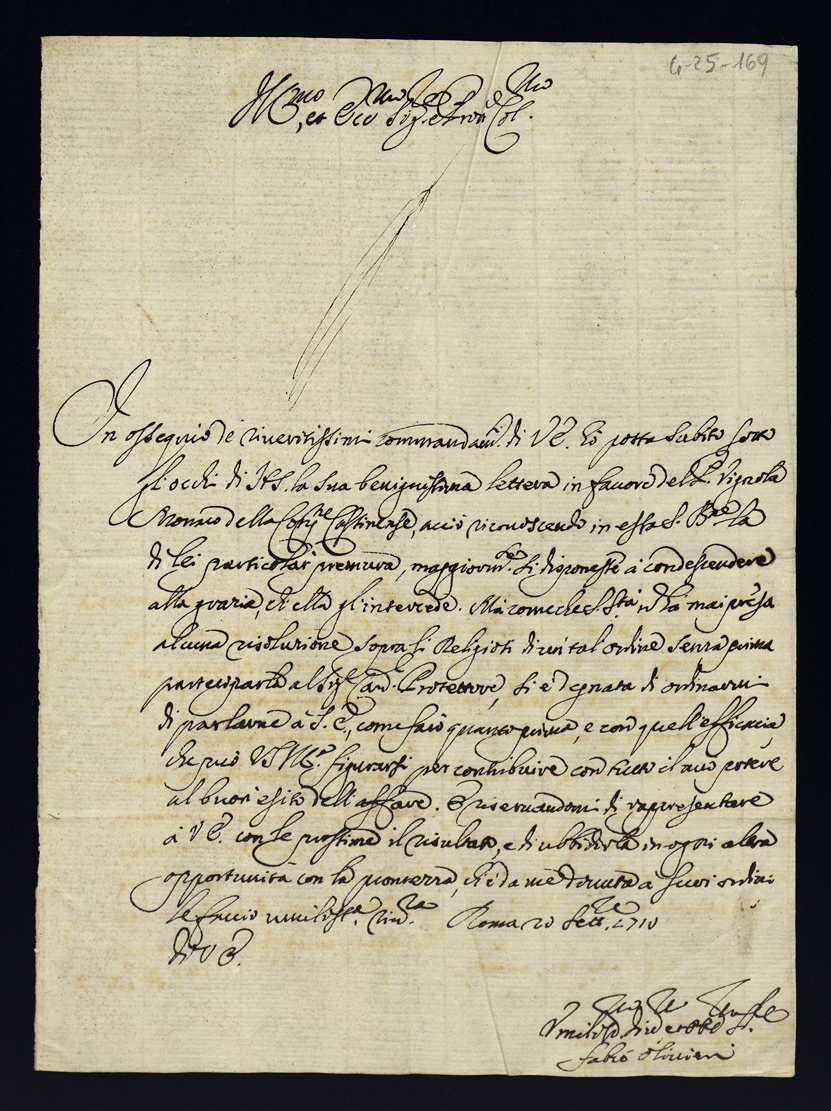 4-25-169
Ill.mo et Ecc.mo Sig.re e Pron Col.mo
In ossequio de riveritissimi commandam.ti di V.E. hò posta subito sotto
gl'occhi di N.S. la sua benignissima lettera in favore del P. Vignola
Monaco della Cong.ne Casinense, acciò riconoscendo in essa S. B.ne la
di lei particolar premura, maggiorm.te si disponesse à condescendere
alla grazia, ch'ella gl'intercede. Mà come che S. S.tà non hà mai presa
alcuna risoluzione sopra li Religiosi di un tal'ordine senza prima
parteciparla al Sig.r Card. Protettore, si è degnata di ordinarmi
di parlarne à S. E., come farò quanto prima, e con quell'efficacia
che può figurarsi per contribuire con tutto il mio potere
al buon'esito dell'affare. E riservandomi di rappresentare
à V.E. con le prossime il risultato, e di ubbidirla in ogni altra
opportunità con la prontezza, ch'è da me dovuta a suoi ordini
le faccio umiliss.a riv.za Roma 20 Sett.re 1710
Di V.E.
Umiliss.o Div.o et Obb.o Ser.
Fabio Olivieri